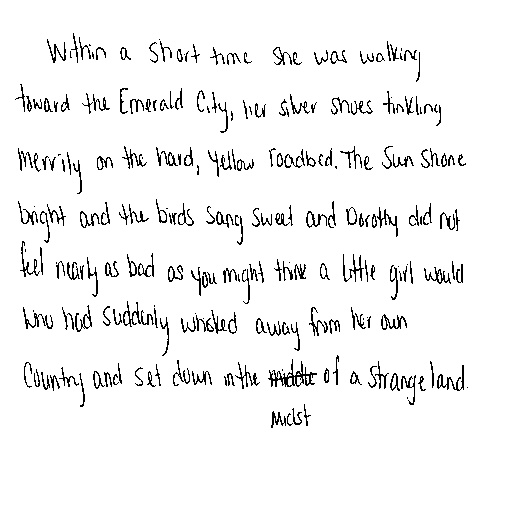 Within a short time she was walking
toward the Emerald City, her silver shoes tinkling
merrily on the hard, yellow roadbed. The sun shone
bright and the birds sang sweet and Dorothy did not
feel nearly as bad as you might think a little girl would
who had suddenly whisked away from her own
Country and set down in the middle of a strange land.
midst